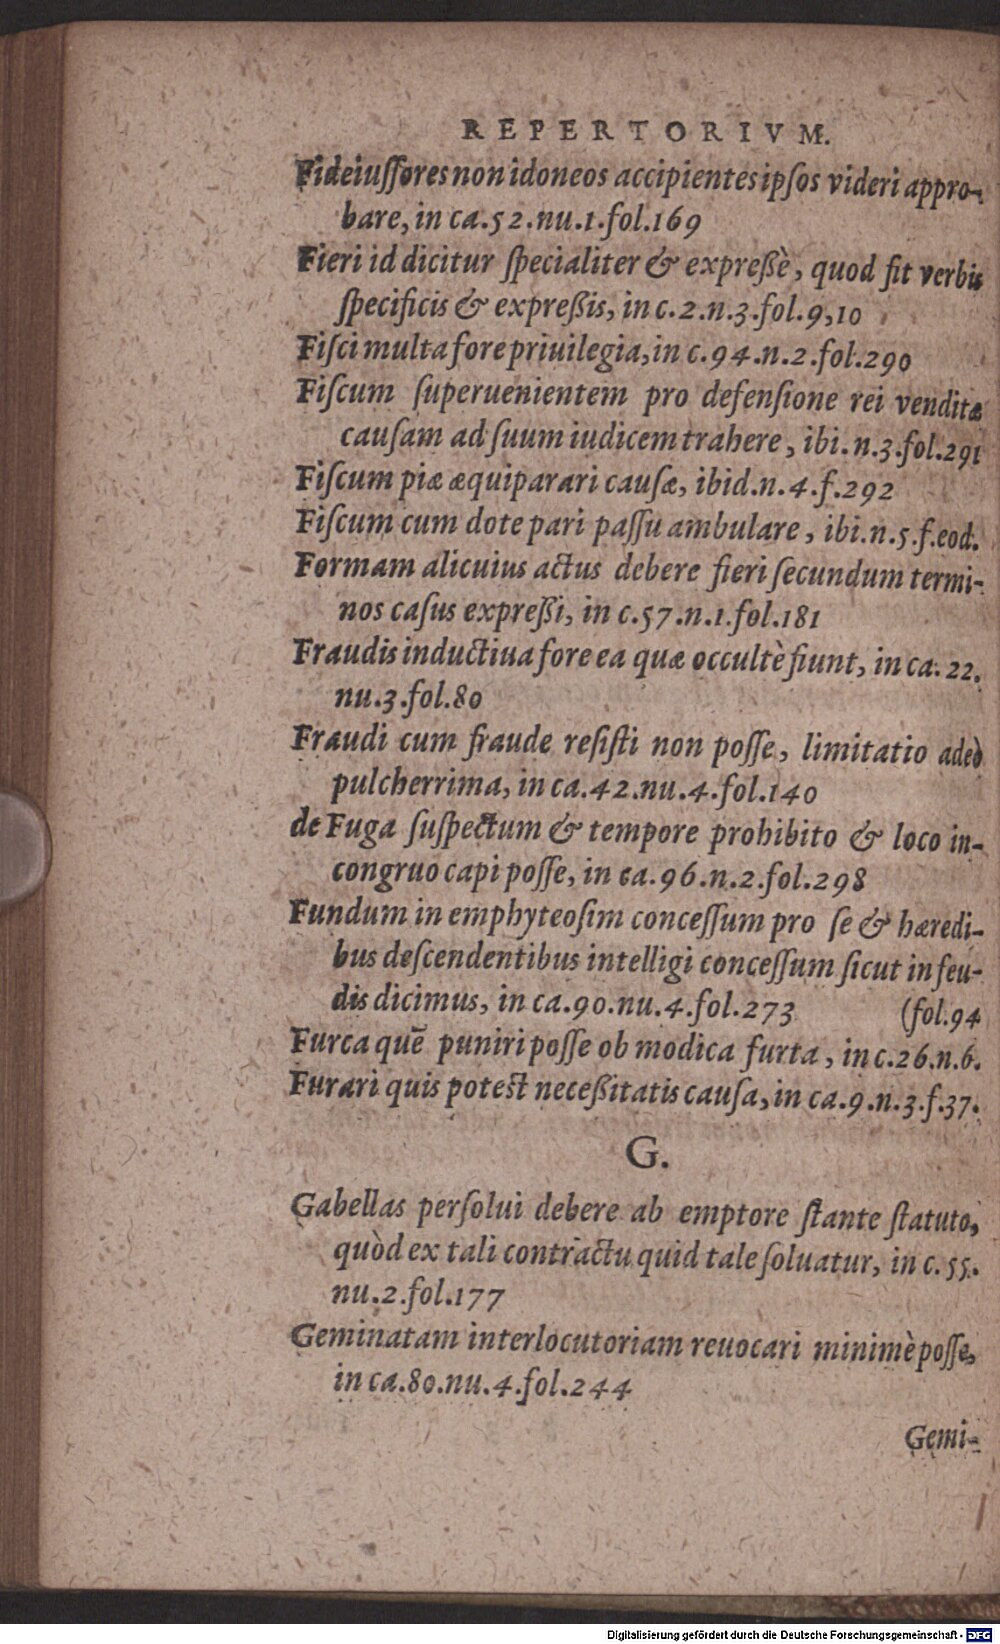 REPERTORIVM.
Fideiuſſores non idoneos accipientes ipſos videri appro-
bare, in ca.52.nu.1.fol.169
Fieri id dicitur ſpecialiter & expreßè, quod fit verbis
ſpecificis & expreßis, in c.2.n.3.fol.9,10
Fiſci multa fore priuilegia, in c.94.n.2.fol.290
Fiſcum ſuperuenientem pro defenſione rei venditæ
cauſam ad ſuum iudicem trahere, ibi.n.3.fol.291
Fiſcum piæ æquiparari cauſæ, ibid.n.4.f.292
Fiſcum cum dote pari paſſu ambulare, ibi.n.5.f.eod.
Formam alicuius actus debere fieri ſecundum termi-
nos caſus expreßi, in c.57.n.1.fol.181
Fraudis inductiua fore ea quæ occultè fiunt, in ca.22.
nu.3.fol.80
Fraudi cum fraude reſiſti non poſſe, limitatio adeò
pulcherrima, in ca.42.nu.4.fol.140
de Fuga ſuſpectum & tempore prohibito & loco in-
congruo capi poſſe, in ca.96.n.2.fol.298
Fundum in emphyteoſim conceſſum pro ſe & hæredi-
bus deſcendentibus intelligi conceſſum ſicut in feu-
dis dicimus, in ca.90.nu.4.fol.273 (fol.94
Furca quē puniri poſſe ob modica furta, in c.26.n.6.
Furari quis poteſt neceßitatis cauſa, in ca.9.n.3.f.37.
G.
Gabellas perſolui debere ab emptore ſtante ſtatuto,
quòd ex tali contractu quid tale ſoluatur, in c.55.
nu.2.fol.177
Geminatam interlocutoriam reuocari minimè poſſe,
in ca.80.nu.4.fol.244
Gemi-
Digitalisierung gefördert durch die Deutsche Forschungsgemeinschaft - DFG